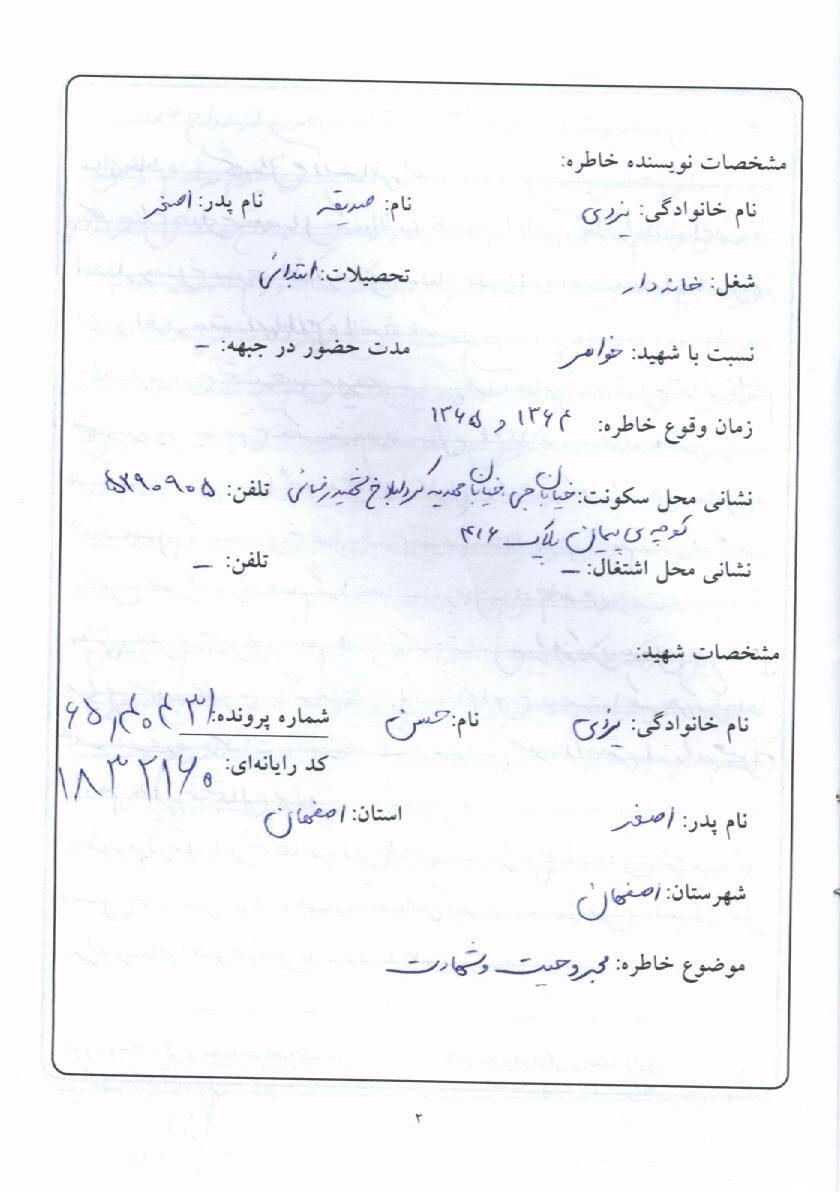 مشخصات نویسنده خاطره:
نام خانوادگی: یزدی نام: صدیقه نام پدر: اصغر
شغل: خانه دار تحصیلات: ابتدائی
نسبت با شهید: خواهر مدت حضور در جبهه: –
زمان وقوع خاطره: ۱۳۶۴ و ۱۳۶۵
نشانی محل سکونت: خیابان جی خیابان محمدیه تلفن: ۵۲۹۰۹۰۵
کوچه ی پیمان پلاک ۴۱۶
نشانی محل اشتغال: – تلفن: –
مشخصات شهید:
نام خانوادگی: یزدی نام: حسن شماره پرونده:
کد رایانه‌ای: ۱۸۳۲۱۶۰
نام پدر: اصغر استان: اصفهان
شهرستان: اصفهان
موضوع خاطره: مجروحیت و شهادت
۲